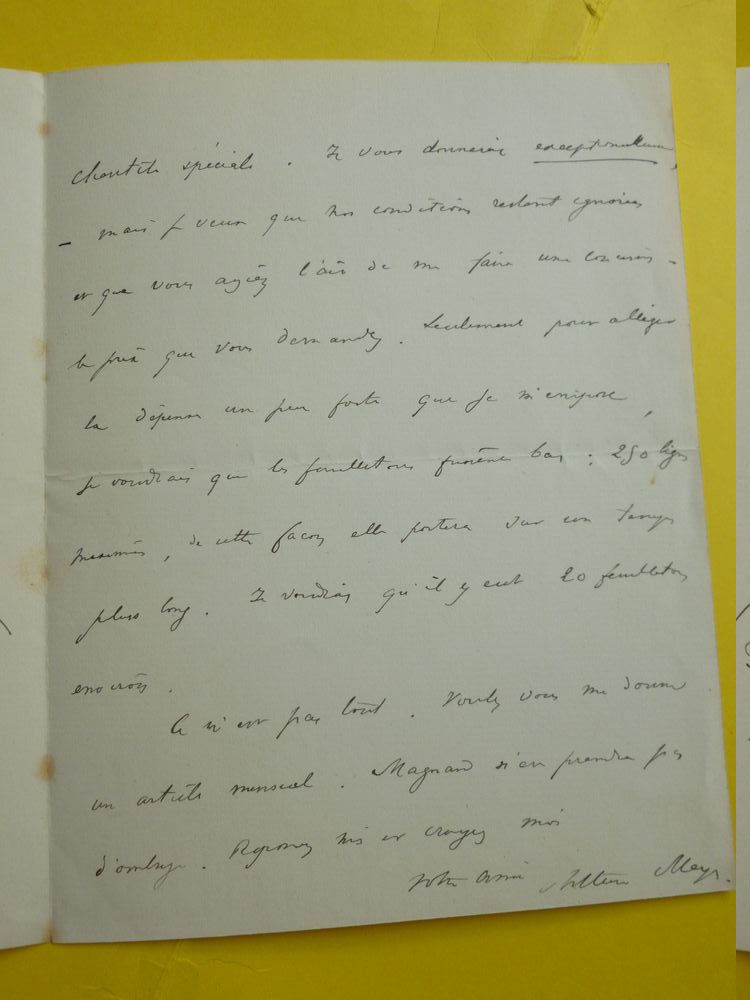 clientèle spéciale. Je vous donnerai exceptionnellement,
- mais je veux que nos conditions restent ignorées
et que vous ayiez l'air de me faire une concession
le prix que vous demandez. Seulement pour alléger
la dépense un peu forte que je m'impose,
je voudrais que les feuilletons fussent bas : 250 lignes
maximum, de cette façon elle portera sur un temps
plus long. Je voudrais qu'il y eut 20 feuilletons
environ.
Ce n'est pas tout. Voulez vous me donner
un article mensuel. Magnard n'en prendra pas
d'ombrage. Répondez moi et croyez moi
votre ami Arthur Meyer.